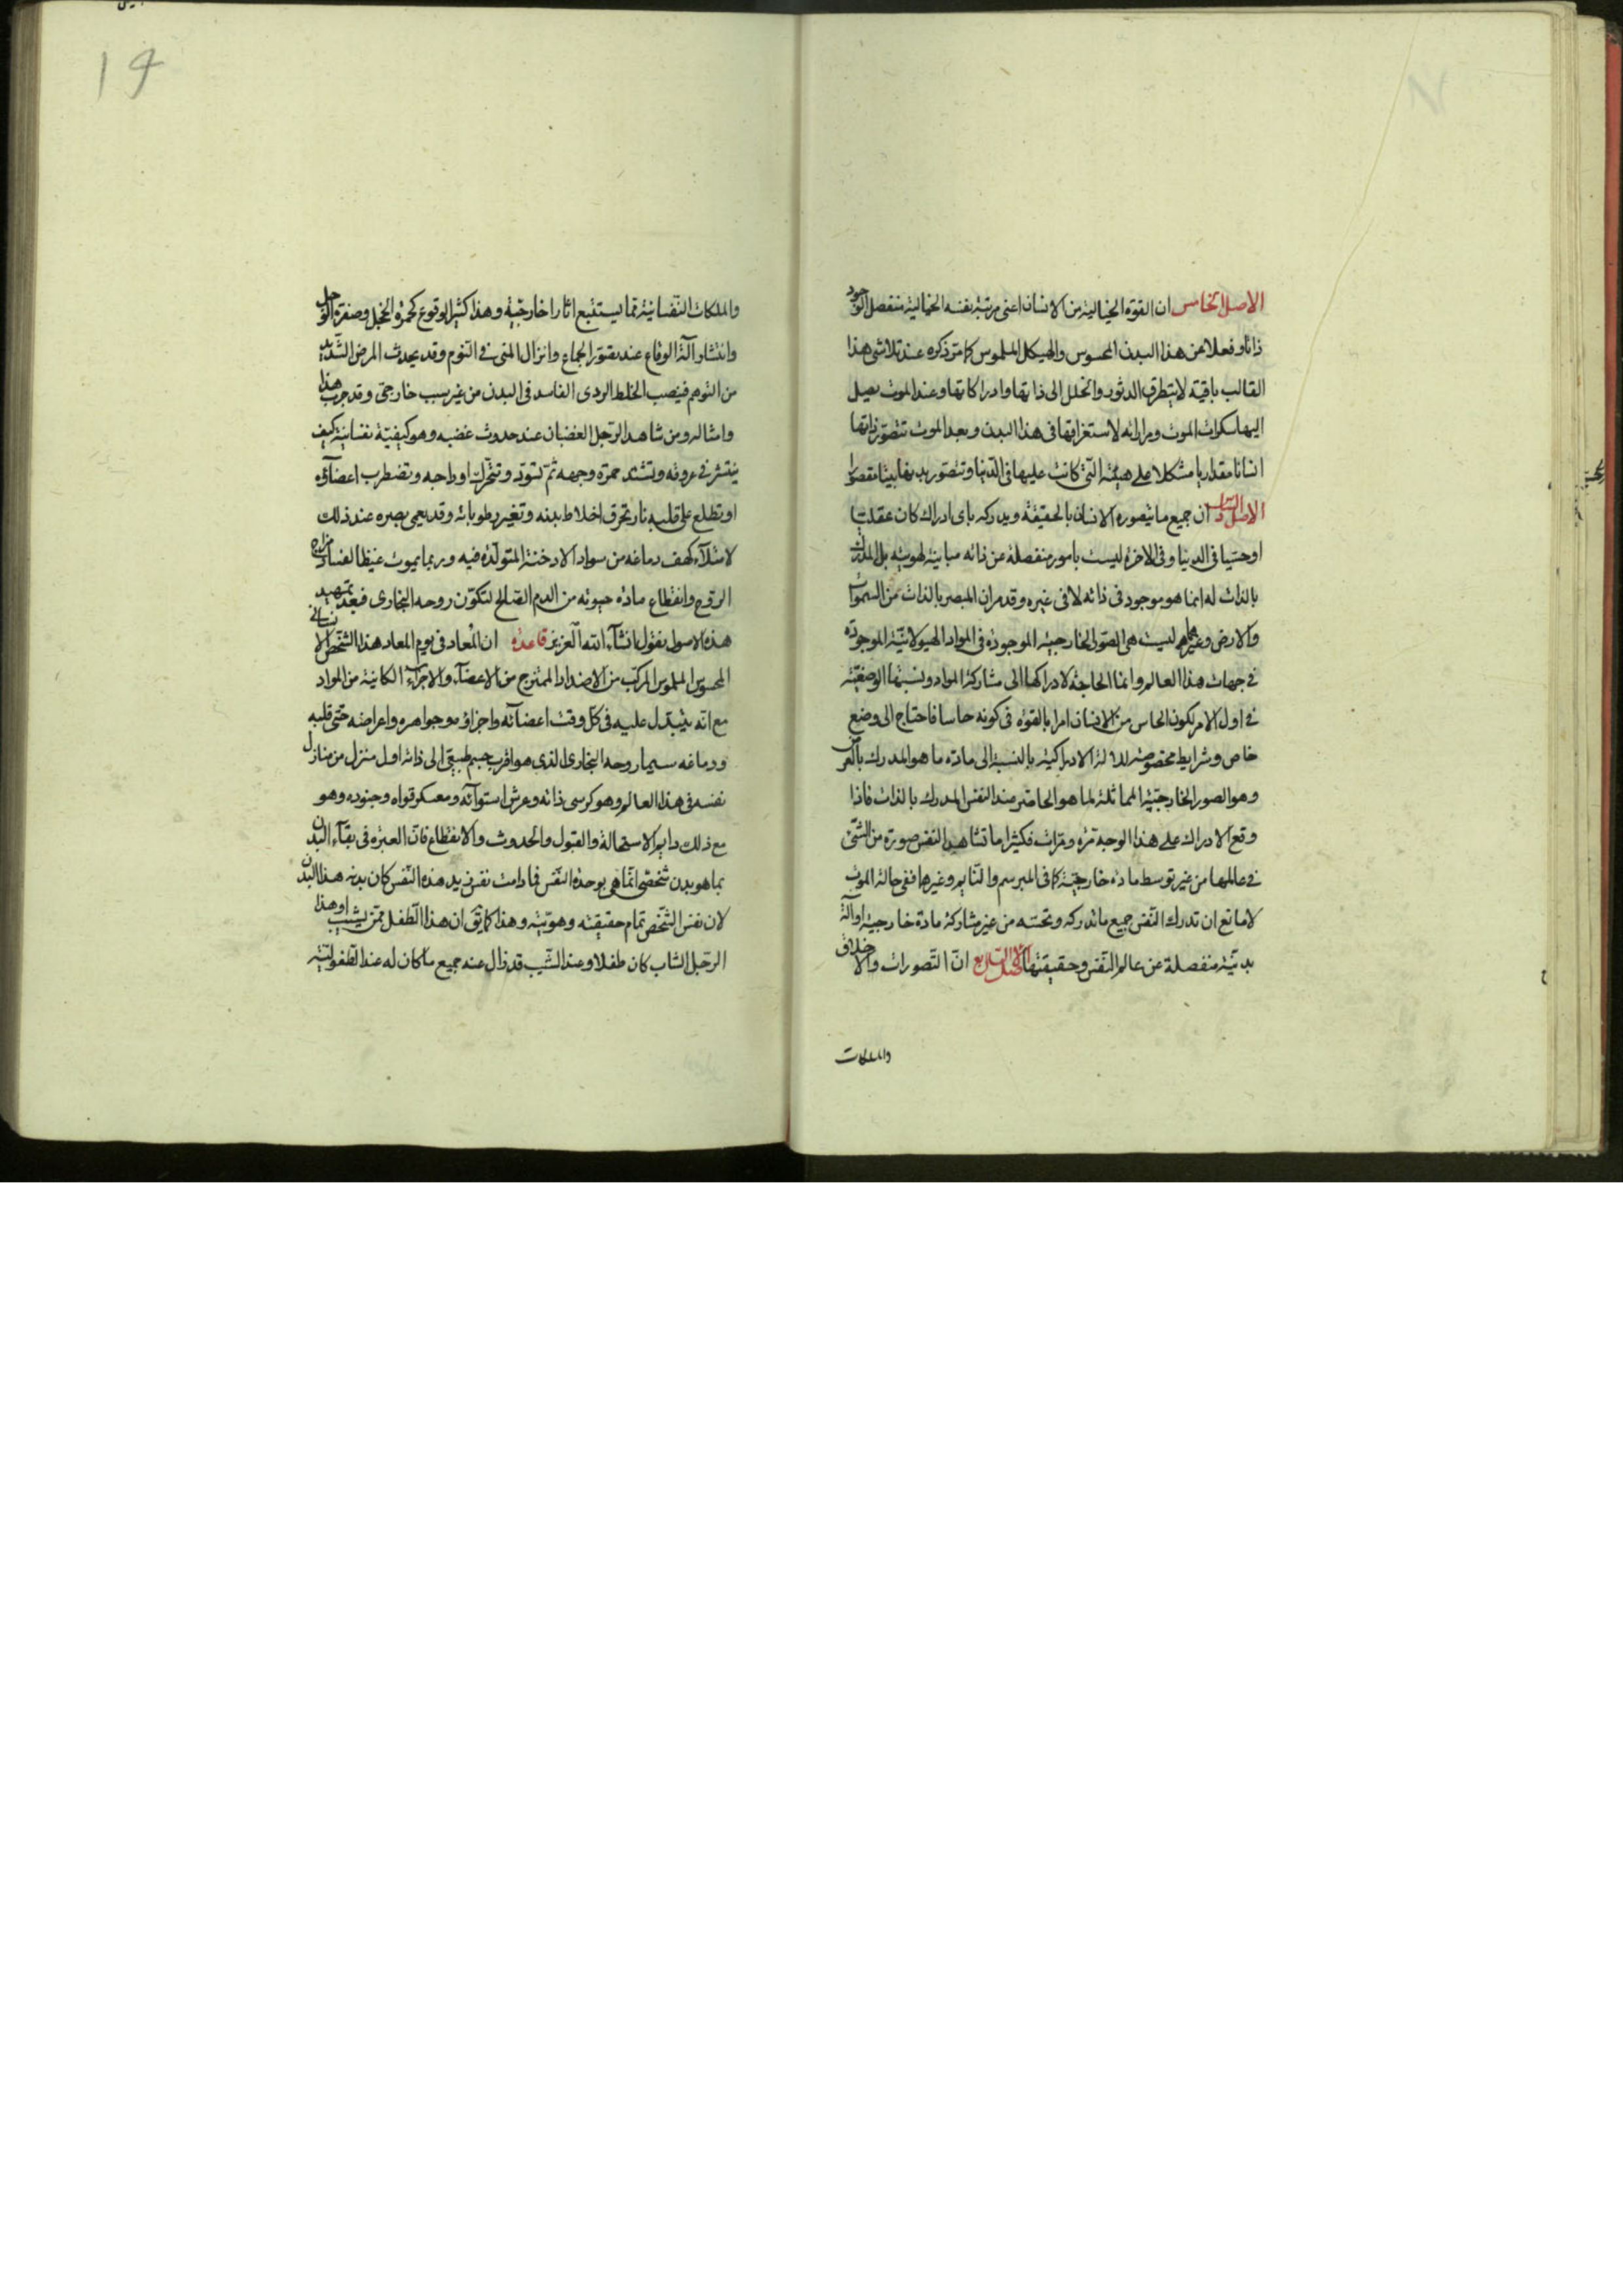 الاصل الخامس ان القوة الخيالية من الانسان اعنى مرتبة نفسه الخيالية منفصل الوجود
ذاتا وفعلا عن هذا البدن المحسوس والهيكل الملموس كما مر ذكره عند تلاشى هذا
القالب باقية لا يتطرق الدثور والخلل الى ذاتها وادراكاتها وعند الموت يصل
اليها سكرات الموت ومراراته لاستغراقها فى هذا البدن وبعد الموت تتصور ذاتها
انسانا مقداريا مشكلا على هيئته التى كانت عليها فى الدنيا وتتصور بدنها ميتا مقبورا
الاصل السادس ان جميع ما يتصوره الانسان بالحقيقة ويدركه باى ادراك كان عقليا
او حسيا فى الدنيا وفى الاخرة ليست بامور منفصلة عن ذاته مباينة لهويته بل المدرك
بالذات له انما هو موجود فى ذاته لا فى غيره وقد مر ان المبصر بالذات من السموات
والارض وغيرهما ليست هى الصور الخارجية الموجودة فى المواد الهيولانية الموجودة
فى جهات هذا العالم وانما الحاجة لادراكها الى مشاركة المواد ونسبتها الوضعية
فى اول الامر لكون الحاس من الانسان امرا بالقوة فى كونه حاسا فاحتاج الى وضع
خاص وشرايط مخصوصة للالة الادراكية بالنسبة الى مادة ما هو المدرك بالعرض
وهو الصور الخارجية المماثلة لما هو الحاضر عند النفس المدرك بالذات فاذا
وقع الادراك على هذا الوجه مرة ومرات فكثيرا ما تشاهد النفس صورة من الشئ
فى عالمها من غير توسط مادة خارجية كما فى المبرسم والنايم وغيرها ففى حالة الموت
لا مانع ان تدرك النفس جميع ما تدركه وتحسه من غير مشاركة مادة خارجية او آلة
بدنية منفصلة عن عالم النفس وحقيقتها الاصل السابع ان التصورات والاخلاق
والملكات
والملكات النفسانية مما يستتبع اثارا خارجية وهذا كثير الوقوع كحمرة الخجل وصفرة الوجل
وانتشار آلة الوقاع عند تصور الجماع وانزال المنى فى النوم وقد يحدث المرض الشديد
من التوهم فينصب الخلط الردى الفاسد فى البدن من غير سبب خارجى وقد جرب هذا
وامثاله ومن شاهد الرجل الغضبان عند حدوث غضبه وهو كيفية نفسانية كيف
ينتشر فى عروقه وتشتد حمرة وجهه ثم تسود وتتحرك اوداجه وتضطرب اعضاؤه
او تطلع على قلبه نار تحرق اخلاط بدنه وتغير رطوباته وقد يعمى بصره عند ذلك
لامتلآء كهف دماغه من سواد الادخنة المتولدة فيه وربما يموت غيظا لفساد مزاج
الروح وانقطاع مادة حيوته من الدم الصالح لتكون روحه البخارى فبعد تمهيد
هذه الاصول نقول انشآء الله العزيز قاعدة ان المعاد فى يوم المعاد هذا الشخص الانسانى
المحسوس الملموس المركب من الاضداد الممتزج من الاعضآء والاجزآء الكاينة من المواد
مع انه يتبدل عليه فى كل وقت اعضآئه واجزاؤه وجواهره واعراضه حتى قلبه
ودماغه سيما روحه البخارى الذى هو اقرب جسم طبيعى الى ذاته اول منزل من منازل
نفسه فى هذا العالم وهو كرسى ذاته وعرش استوآئه ومعسكر قواه وجنوده وهو
مع ذلك دايم الاستحالة والقبول والحدوث والانقطاع فان العبرة فى بقآء البدن
بما هو بدن شخصى انما هى بوحدة النفس فما دامت نفس زيد هذه النفس كان بدنه هذا البدن
لان نفس الشخص تمام حقيقته وهويته وهذا كما يق ان هذا الطفل ممن يشيب او هذا
الرجل الشاب كان طفلا وعند الشيب قد زال عنه جميع ما كان له عند الطفولية